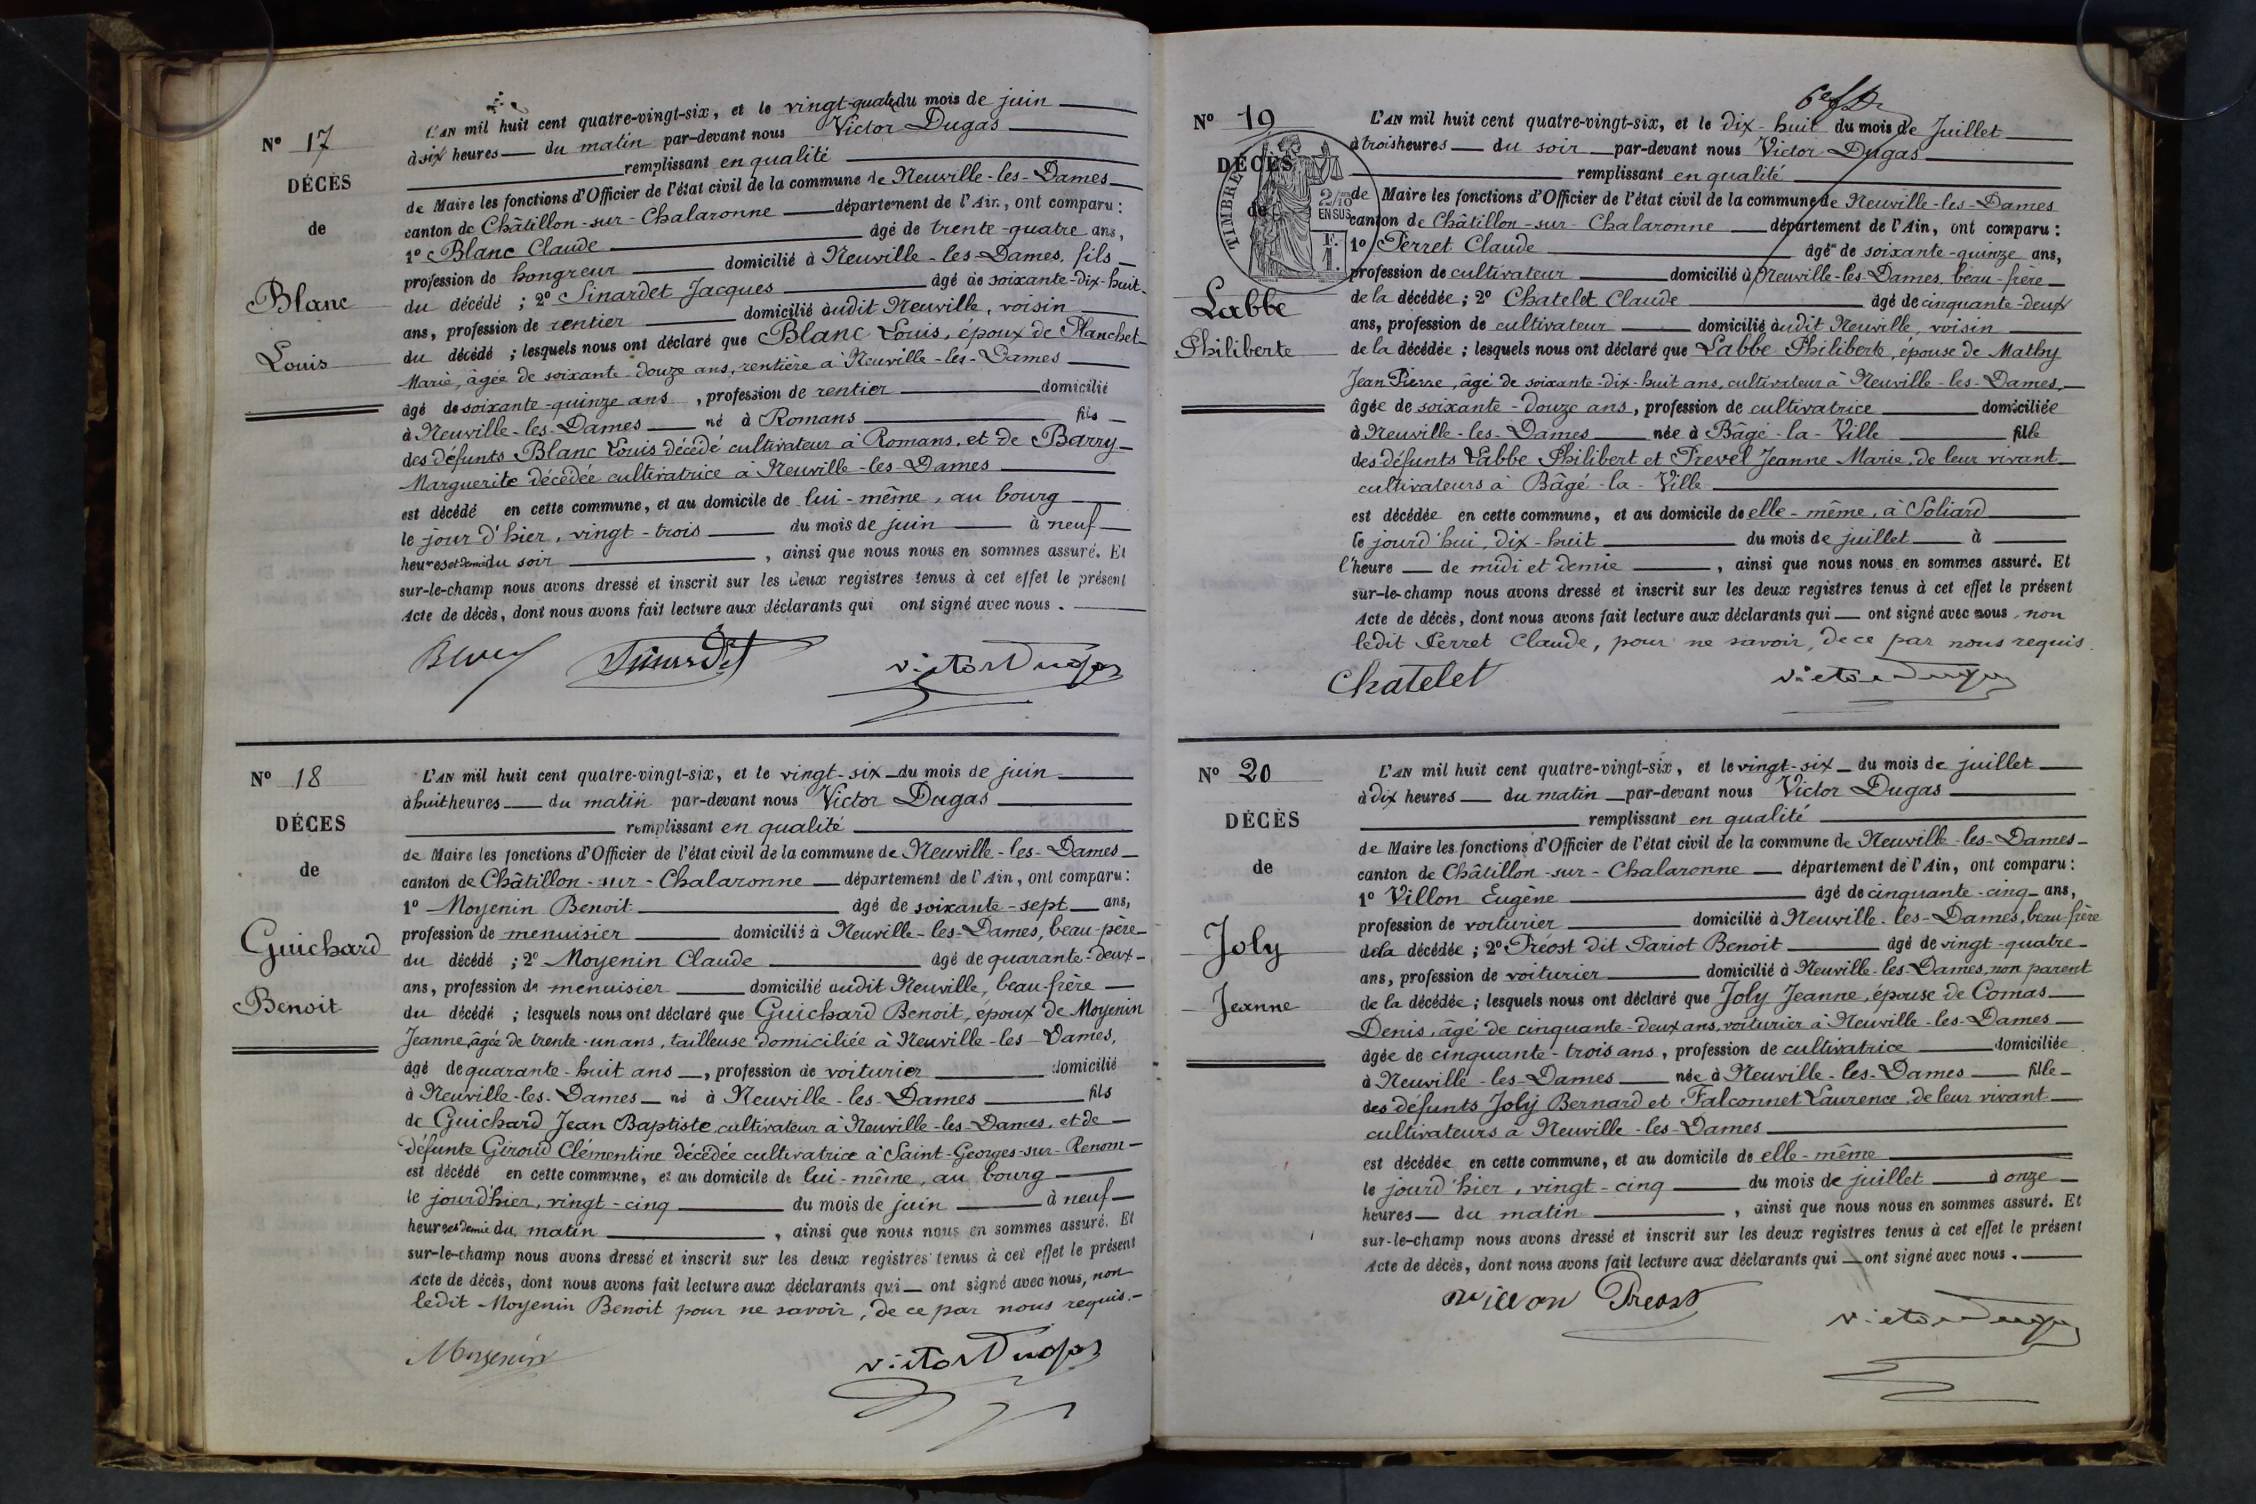 Nº 17
DÉCÈS
de
Blanc
Louis
L'AN mil huit cent quatre-vingt-six, et le vingt-quatre du mois de juin
à six heures du matin par-devant nous Victor Dugas
remplissant en qualité
de Maire les fonctions d'Officier de l'état civil de la commune de Neuville-les-Dames
canton de Châtillon-sur-Chalaronne département de l'Ain, ont comparu :
1º Blanc Claude âgé de trente-quatre ans,
profession de hongreur domicilié à Neuville-les-Dames, fils
du décédé ; 2º Sinardet Jacques âgé de soixante-dix-huit
ans, profession de rentier domicilié audit Neuville, voisin
du décédé ; lesquels nous ont déclaré que Blanc Louis, époux de Planchet
Marie, âgée de soixante-douze ans, rentière à Neuville-les-Dames
âgé de soixante-quinze ans, profession de rentier domicilié
à Neuville-les-Dames né à Romans fils
des défunts Blanc Louis décédé cultivateur à Romans, et de Barry
Marguerite décédée cultivatrice à Neuville-les-Dames
est décédé en cette commune, et au domicile de lui-même, au bourg
le jour d'hier, vingt-trois du mois de juin à neuf
heures et demie du soir, ainsi que nous nous en sommes assuré. Et
sur-le-champ nous avons dressé et inscrit sur les deux registres tenus à cet effet le présent
Acte de décès, dont nous avons fait lecture aux déclarants qui ont signé avec nous.
Sinardet Victor Dugas
Nº 18
DÉCÈS
de
Guichard
Benoit
L'AN mil huit cent quatre-vingt-six, et le vingt-six du mois de juin
à huit heures du matin par-devant nous Victor Dugas
remplissant en qualité
de Maire les fonctions d'Officier de l'état civil de la commune de Neuville-les-Dames
canton de Châtillon-sur-Chalaronne département de l'Ain, ont comparu :
1º Moyenin Benoit âgé de soixante-sept ans,
profession de menuisier domicilié à Neuville-les-Dames, beau-père
du décédé ; 2º Moyenin Claude âgé de quarante-deux
ans, profession de menuisier domicilié audit Neuville, beau-frère
du décédé ; lesquels nous ont déclaré que Guichard Benoit, époux de Moyenin
Jeanne, âgée de trente-un ans, tailleuse domiciliée à Neuville-les-Dames,
âgé de quarante-huit ans, profession de voiturier domicilié
à Neuville-les-Dames né à Neuville-les-Dames fils
de Guichard Jean Baptiste, cultivateur à Neuville-les-Dames, et de
défunte Giroud Clémentine décédée cultivatrice à Saint-Georges-sur-Renom
est décédé en cette commune, et au domicile de lui-même, au bourg
le jour d'hier, vingt-cinq du mois de juin à neuf
heures et demie du matin, ainsi que nous nous en sommes assuré. Et
sur-le-champ nous avons dressé et inscrit sur les deux registres tenus à cet effet le présent
Acte de décès, dont nous avons fait lecture aux déclarants qui ont signé avec nous, non
ledit Moyenin Benoit pour ne savoir, de ce par nous requis.
Moyenin Victor Dugas
Nº 19
DÉCÈS
de
Labbe
Philiberte
TIMBRE
2/10
EN SUS
L'AN mil huit cent quatre-vingt-six, et le dix-huit du mois de Juillet
à trois heures du soir par-devant nous Victor Dugas
remplissant en qualité
de Maire les fonctions d'Officier de l'état civil de la commune de Neuville-les-Dames
canton de Châtillon-sur-Chalaronne département de l'Ain, ont comparu :
1º Perret Claude âgé de soixante-quinze ans,
profession de cultivateur domicilié à Neuville-les-Dames, beau-frère
de la décédée ; 2º Chatelet Claude âgé de cinquante-deux
ans, profession de cultivateur domicilié audit Neuville, voisin
de la décédée ; lesquels nous ont déclaré que Labbe Philiberte, épouse de Mathy
Jean Pierre, âgé de soixante-dix-huit ans, cultivateur à Neuville-les-Dames,
âgée de soixante-douze ans, profession de cultivatrice domiciliée
à Neuville-les-Dames née à Bâgé-la-Ville fille
des défunts Labbe Philibert et Prevel Jeanne Marie, de leur vivant
cultivateurs à Bâgé-la-Ville
est décédée en cette commune, et au domicile de elle-même, à Soliard
le jourd'hui, dix-huit du mois de juillet à
l'heure de midi et demie, ainsi que nous nous en sommes assuré. Et
sur-le-champ nous avons dressé et inscrit sur les deux registres tenus à cet effet le présent
Acte de décès, dont nous avons fait lecture aux déclarants qui ont signé avec nous, non
ledit Perret Claude, pour ne savoir, de ce par nous requis.
Chatelet Victor Dugas
Nº 20
DÉCÈS
de
Joly
Jeanne
L'AN mil huit cent quatre-vingt-six, et le vingt-six du mois de juillet
à dix heures du matin par-devant nous Victor Dugas
remplissant en qualité
de Maire les fonctions d'Officier de l'état civil de la commune de Neuville-les-Dames
canton de Châtillon-sur-Chalaronne département de l'Ain, ont comparu :
1º Villon Eugène âgé de cinquante-cinq ans,
profession de voiturier domicilié à Neuville-les-Dames, beau-frère
de la décédée ; 2º Préost dit Pariot Benoit âgé de vingt-quatre
ans, profession de voiturier domicilié à Neuville-les-Dames, non parent
de la décédée ; lesquels nous ont déclaré que Joly Jeanne, épouse de Comas
Denis, âgé de cinquante-deux ans, voiturier à Neuville-les-Dames
âgée de cinquante-trois ans, profession de cultivatrice domiciliée
à Neuville-les-Dames née à Neuville-les-Dames fille
des défunts Joly Bernard et Falconnet Laurence, de leur vivant
cultivateurs à Neuville-les-Dames
est décédée en cette commune, et au domicile de elle-même
le jour d'hier, vingt-cinq du mois de juillet à onze
heures du matin, ainsi que nous nous en sommes assuré. Et
sur-le-champ nous avons dressé et inscrit sur les deux registres tenus à cet effet le présent
Acte de décès, dont nous avons fait lecture aux déclarants qui ont signé avec nous.
Villon Preost Victor Dugas